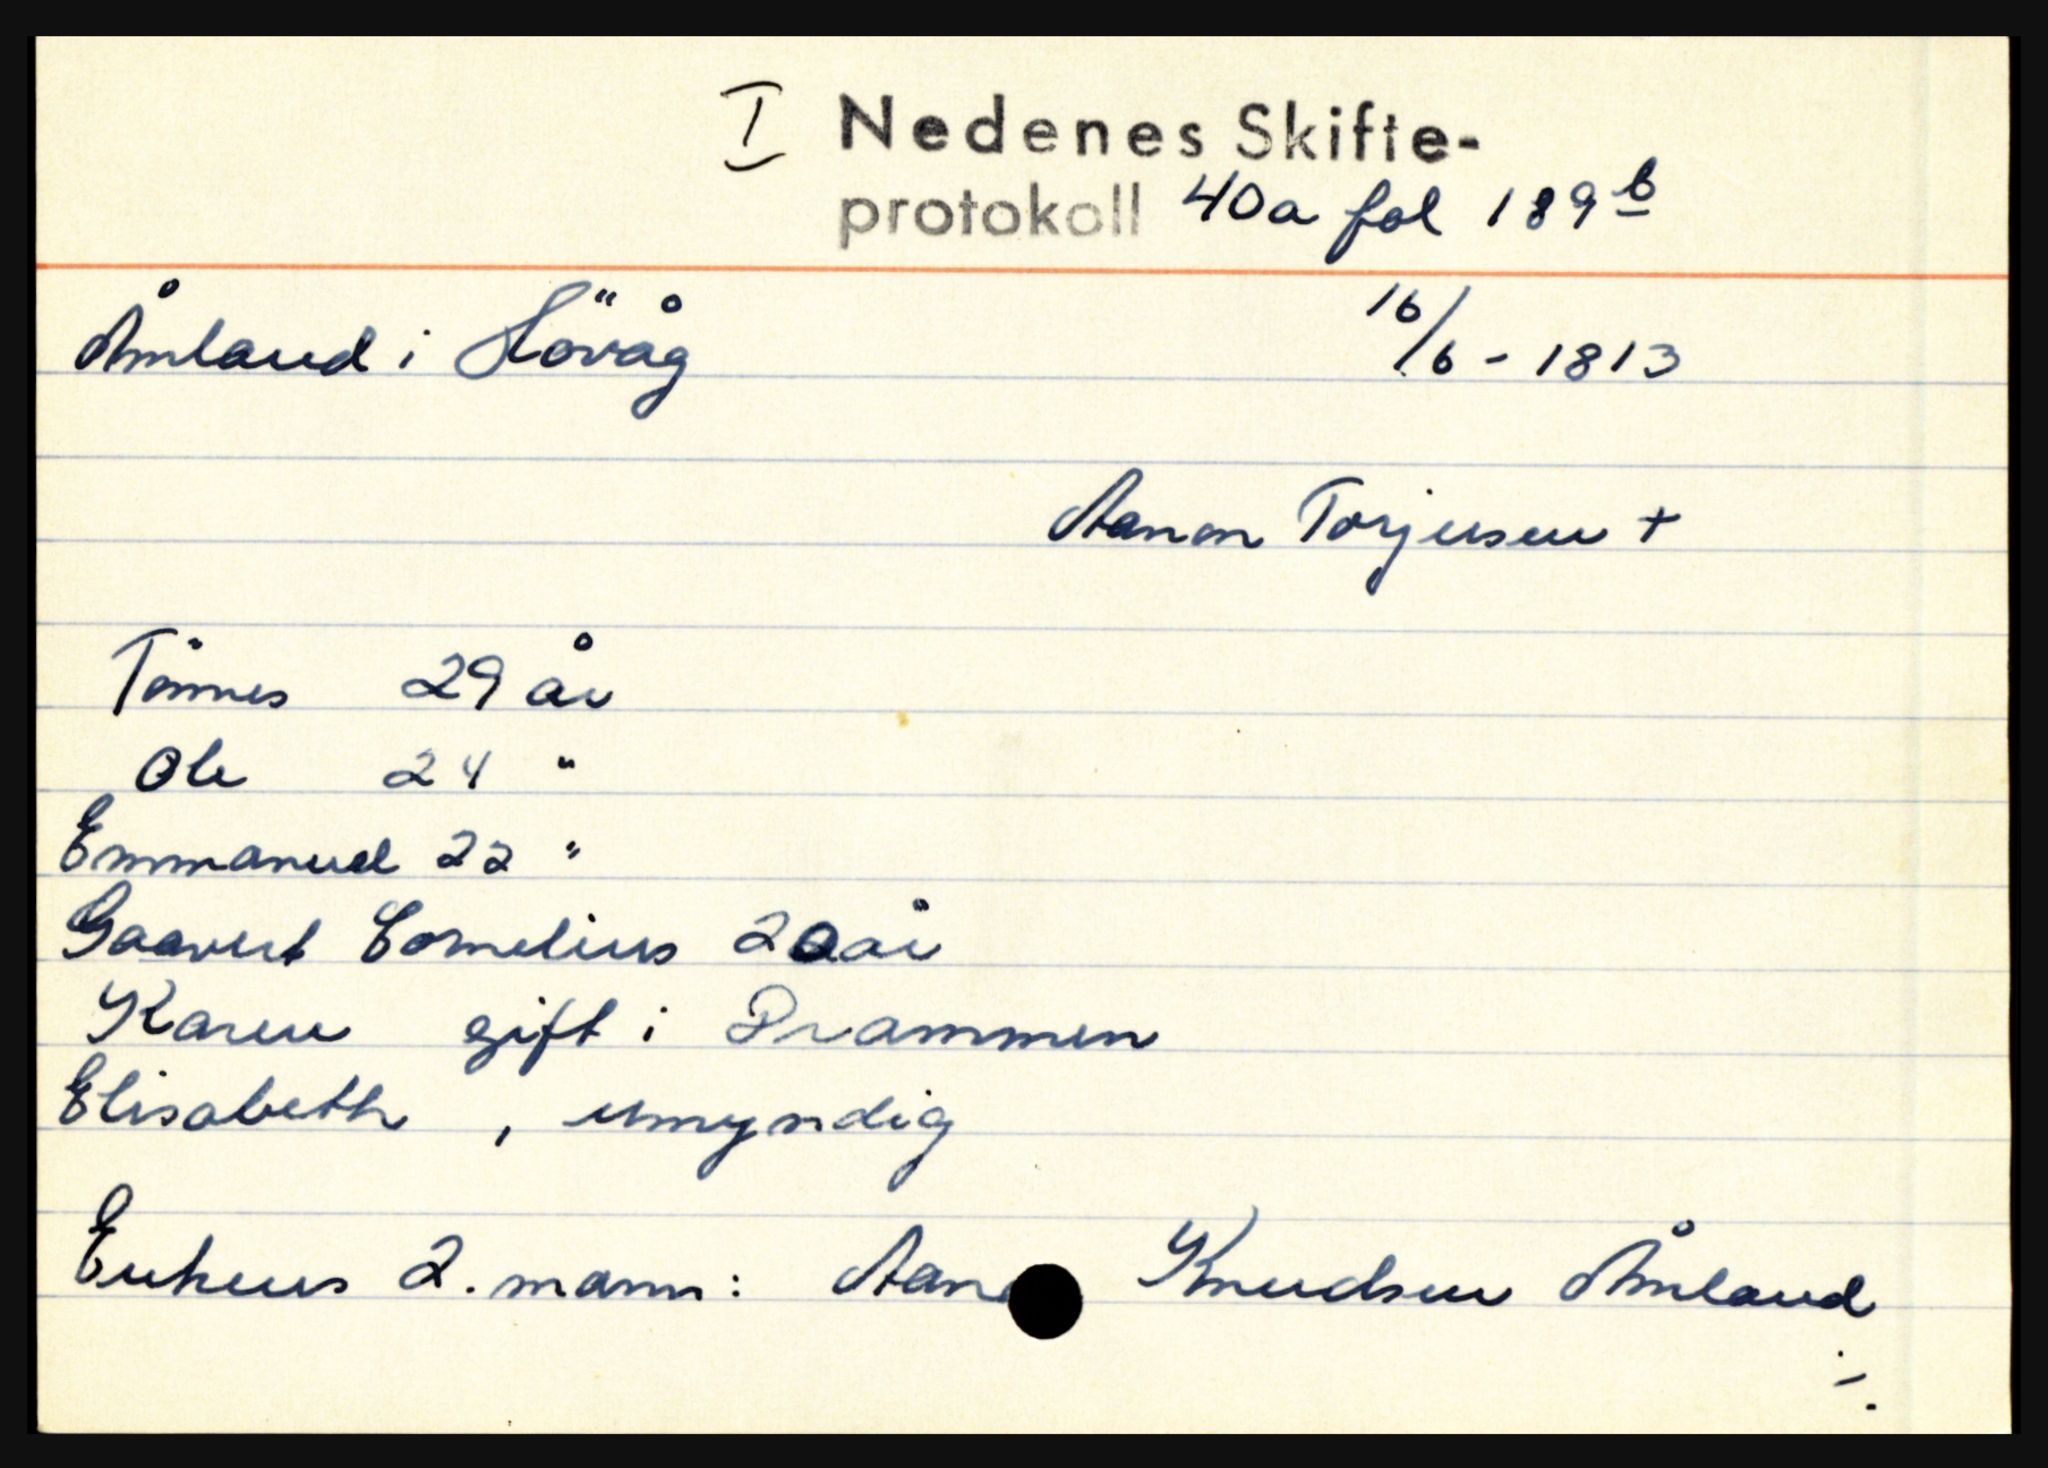 I Nedenes Skifte-
protokoll 40a fol 189b
Åmland i Hövåg 16/6 - 1813
Aanon Torjersen +
Tönnes 29 år
Ole 24 "
Emmanuel 22 "
Gaavert Cornelius 20 år
Karen gift i Drammen
Elisabeth , umyndig
Enkens 2. mann: Knudsen Åmland